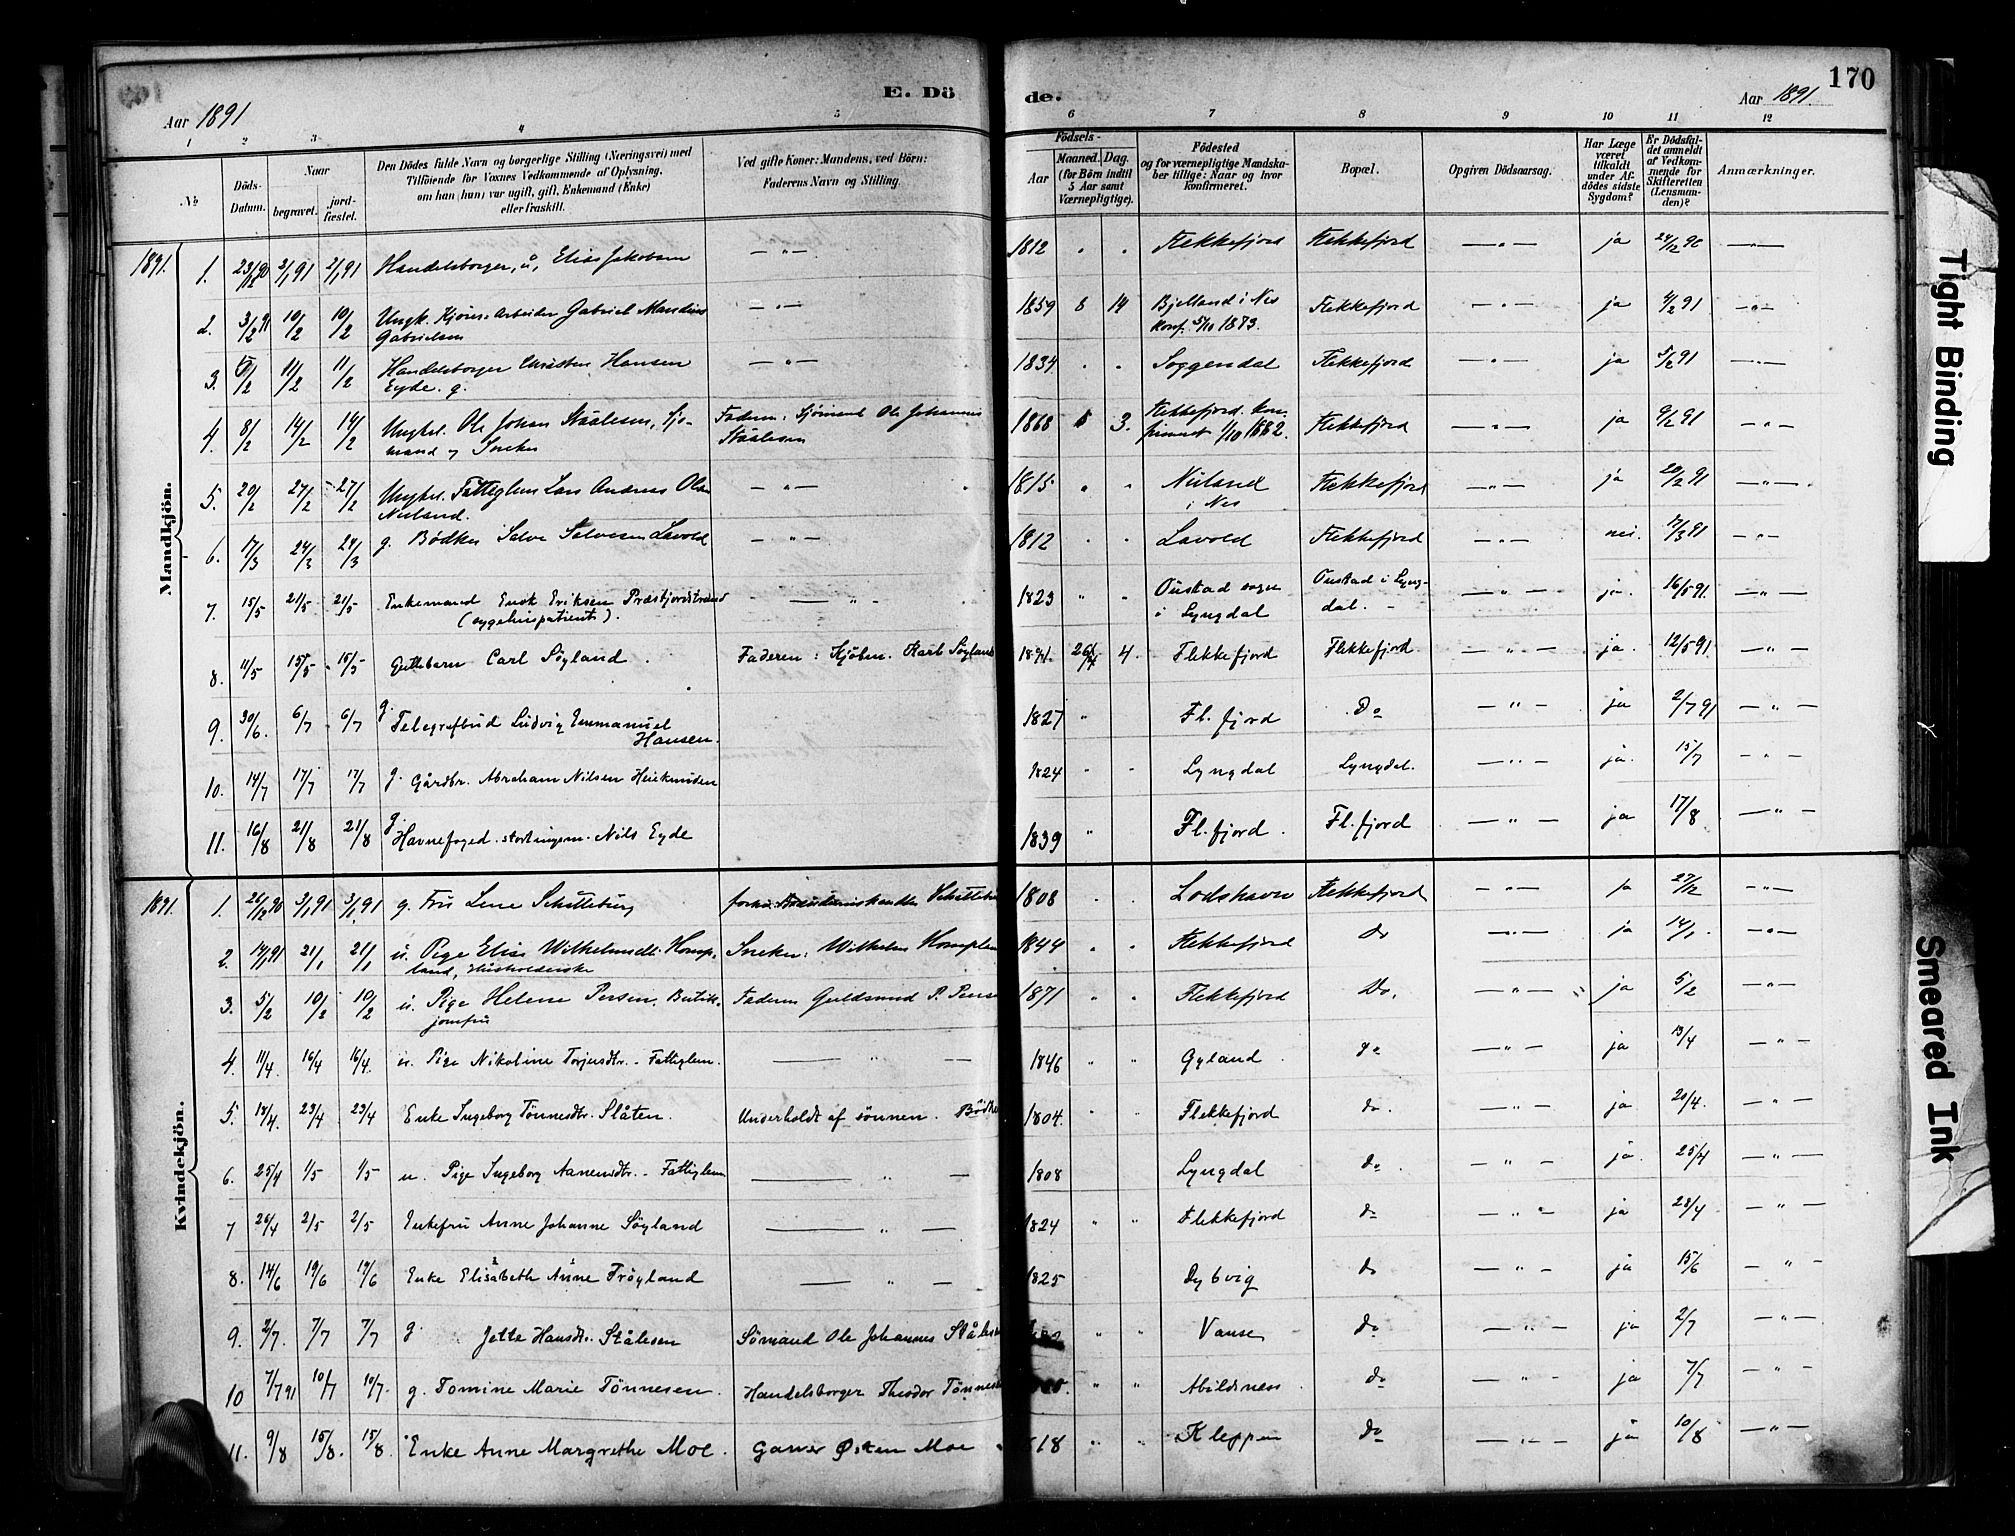 170
E. Dö de.
Aar 1891
Aar 1891.
1 2 3 4 5 6 7 8 9 10 11 12
№
Döds-Datum.
Naar
begravet.
jord-fæstet.
Den Dödes fulde Navn og borgerlige Stilling (Næringsvei) med
Tilföiende for Voxnes Vedkommende af Oplysning,
om han (hun) var ugift, gift, Enkemand (Enke)
eller fraskilt.
Ved gifte Koner: Mandens, ved Börn:
Faderens Navn og Stilling.
Födsels-
Aar
Maaned. Dag.
(for Börn indtil
5 Aar samt
Værnepligtige).
Födested
og for værnepligtige Mandska-
ber tillige: Naar og hvor
konfirmeret.
Bopæl.
Opgiven Dödsaarsag.
Har Læge
været
tilkaldt
under Af-
dödes sidste
Sygdom?
Er Dödsfal-
det anmeldt
af Vedkom-
mende for
Skifteretten
(Lensman-
den)?
Anmærkninger.
Mandkjön.
1891. 1. 23/12 90 2/1 91 2/1 91 Handelsborger, u, Elias Jakobsen — " — 1812 " " Flekkefjord Flekkefjord — " — ja 24/12 90 — " —
2. 3/2 91 10/2 10/2 Ungk. Kjøres. Arbeider Gabriel Mandius — " — 1859 8 14 Bjelland i Nes Flekkefjord — " — ja 4/2 91 — " —
Gabrielsen konf. 5/10 1873.
3. 5/2 11/2 11/2 Handelsborger Christen Hansen — " — 1834 " " Soggendal Flekkefjord — " — ja 5/2 91 — " —
Eyde. g.
4. 8/2 14/2 14/2 Ungkl. Ole Johan Staalesen, Sjø- Faderen: Sjømand Ole Johannes 1868 5 3. Flekkefjord. kon- Flekkefjord — " — ja 9/2 91 — " —
mand og Snekker Staalesen firmeret 1/10 1882.
5. 20/2 27/2 27/2 Ungkl. Fattiglem Lars Andreas Olsen — " — 1815 " " Nuland Flekkefjord — " — ja 20/2 91 — " —
Nuland. i Nes
6. 17/3 24/3 24/3 g. Bødker Salve Salvesen Lavold — " — 1812 " " Lavold Flekkefjord — " — nei. 17/3 91 — " —
7. 15/5 21/5 21/5 Enkemand Enok Eriksen Præstjordstrand — " — 1823 " " Qustad sogn Qustad i Lyng- — " — ja. 16/5 91. — " —
(sygehuspatient). i Lyngdal dal.
8. 11/5 15/5 15/5 Guttebarn Carl Söyland. Faderen: Kjøbm. Karl Söyland 1891. 4. Flekkefjord Flekkefjord. — " — ja. 12/5 91. — " —
9. 30/6. 6/7 6/7 g. Telegrafbud Ludvig Emmanuel 1827 " Fl. fjord Do — " — ja 2/7 91 — " —
Hansen.
10. 14/7 17/7 17/7 g. Gårdbr. Abraham Nilsen 1824 " " Lyngdal Lyngdal. — " — ja. 15/7 — " —
11. 16/8 21/8 21/8 g. Havnefoged. stortingsm. Nils Eyde 1839 " Fl. fjord. Fl. fjord — " — ja 17/8 — " —
Kvindekjön.
1891. 1. 26/12 90 3/1 91 3/1 91 g. Fru Lene 1808 " " Lodshavn Flekkefjord — " — ja 27/12 — " —
2. 14/1 91 21/1 21/1 u. Pige Elise Wilhelmsdt. Homp- Snekker: Wilhelm Hompland 1844 " " Flekkefjord do — " — ja 14/1 — " —
land, Husholderske
3. 5/2 10/2 10/2 u. Pige Helene Persen. Butik- Faderen Guldsmed P. Persen 1871 " " Flekkefjord Do. — " — ja 5/2 — " —
jomfru
4. 11/4. 16/4 16/4. u. Pige Nikoline Torjusdtr. - Fattiglem. — " — 1846 " " Gyland do — " — ja 13/4 — " —
5. 18/4. 23/4 23/4 Enke Ingeborg Tönnesdtr. Slåten. Underholdt af sönnen. Bödker 1804. " " Flekkefjord do. — " — ja 20/4. — " —
6. 25/4 1/5 1/5 u. Pige Ingeborg Aanensdtr. - Fattiglem — " — 1808 " " Lyngdal do. — " — ja. 25/4 — " —
7 26/4 2/5 2/5 Enkefru Anne Johanne Söyland — " — 1824 " " Flekkefjord do — " — ja 28/4 — " —
8. 14/6 19/6 19/6 Enke Elisabeth Anne Fröyland — " — 1825 Dybvig do — " — ja 15/6 — " —
9. 2/7. 7/7 7/7 g Jette Hansdtr. Stålesen Sömand Ole Johannes Ståles " " Vanse do — " — ja 2/7 — " —
10 7/7 91 10/7 10/7. g. Tomine Marie Tönnesen. Handelsborger Theodor Tönnes " " Abildsnes do — " — ja 7/7 — " —
11. 9/8 15/8. 15/8. Enke Anne Margrethe Moe. Garver Østen Moe 18 " " Kleppen do — " — ja 10/8 — " —
Tight Binding
Smeared Ink